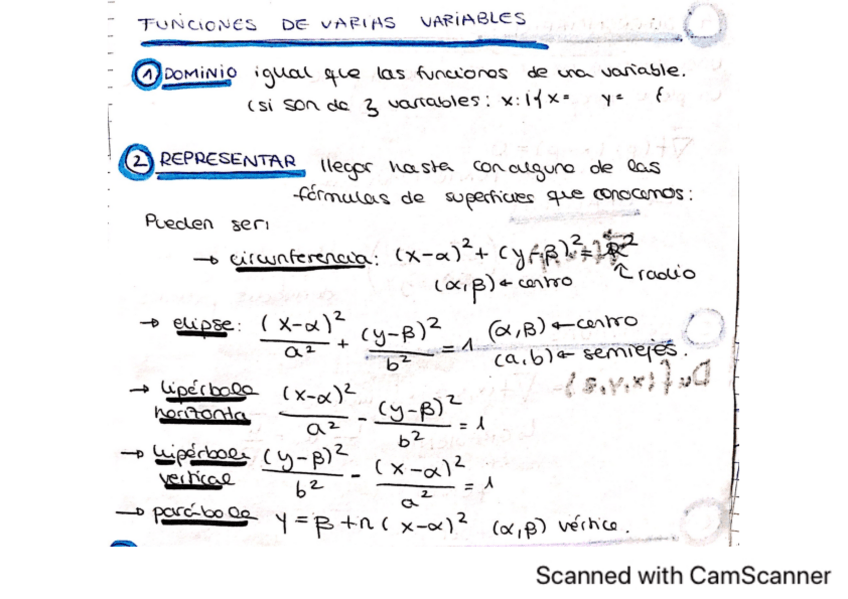 FUNCIONES DE VARIAS VARIABLES
① DOMINIO igual que las funciones de una variable.
(si son de 3 variables: x:1{x= y= {
② REPRESENTAR llegar hasta con alguna de las
fórmulas de superficies que conocemos:
Pueden ser:
→ circunferencia: (x-α)² + (y-β)² = R²
(α,β) ← centro ↑ radio
→ elipse: (x-α)²/a² + (y-β)²/b² = 1 (α,β) ← centro
(a,b) ← semiejes.
→ hipérbola horizonta (x-α)²/a² - (y-β)²/b² = 1
→ hipérbola vertical (y-β)²/b² - (x-α)²/a² = 1
→ parábola y = β + n(x-α)² (α,β) vértice.
Scanned with CamScanner